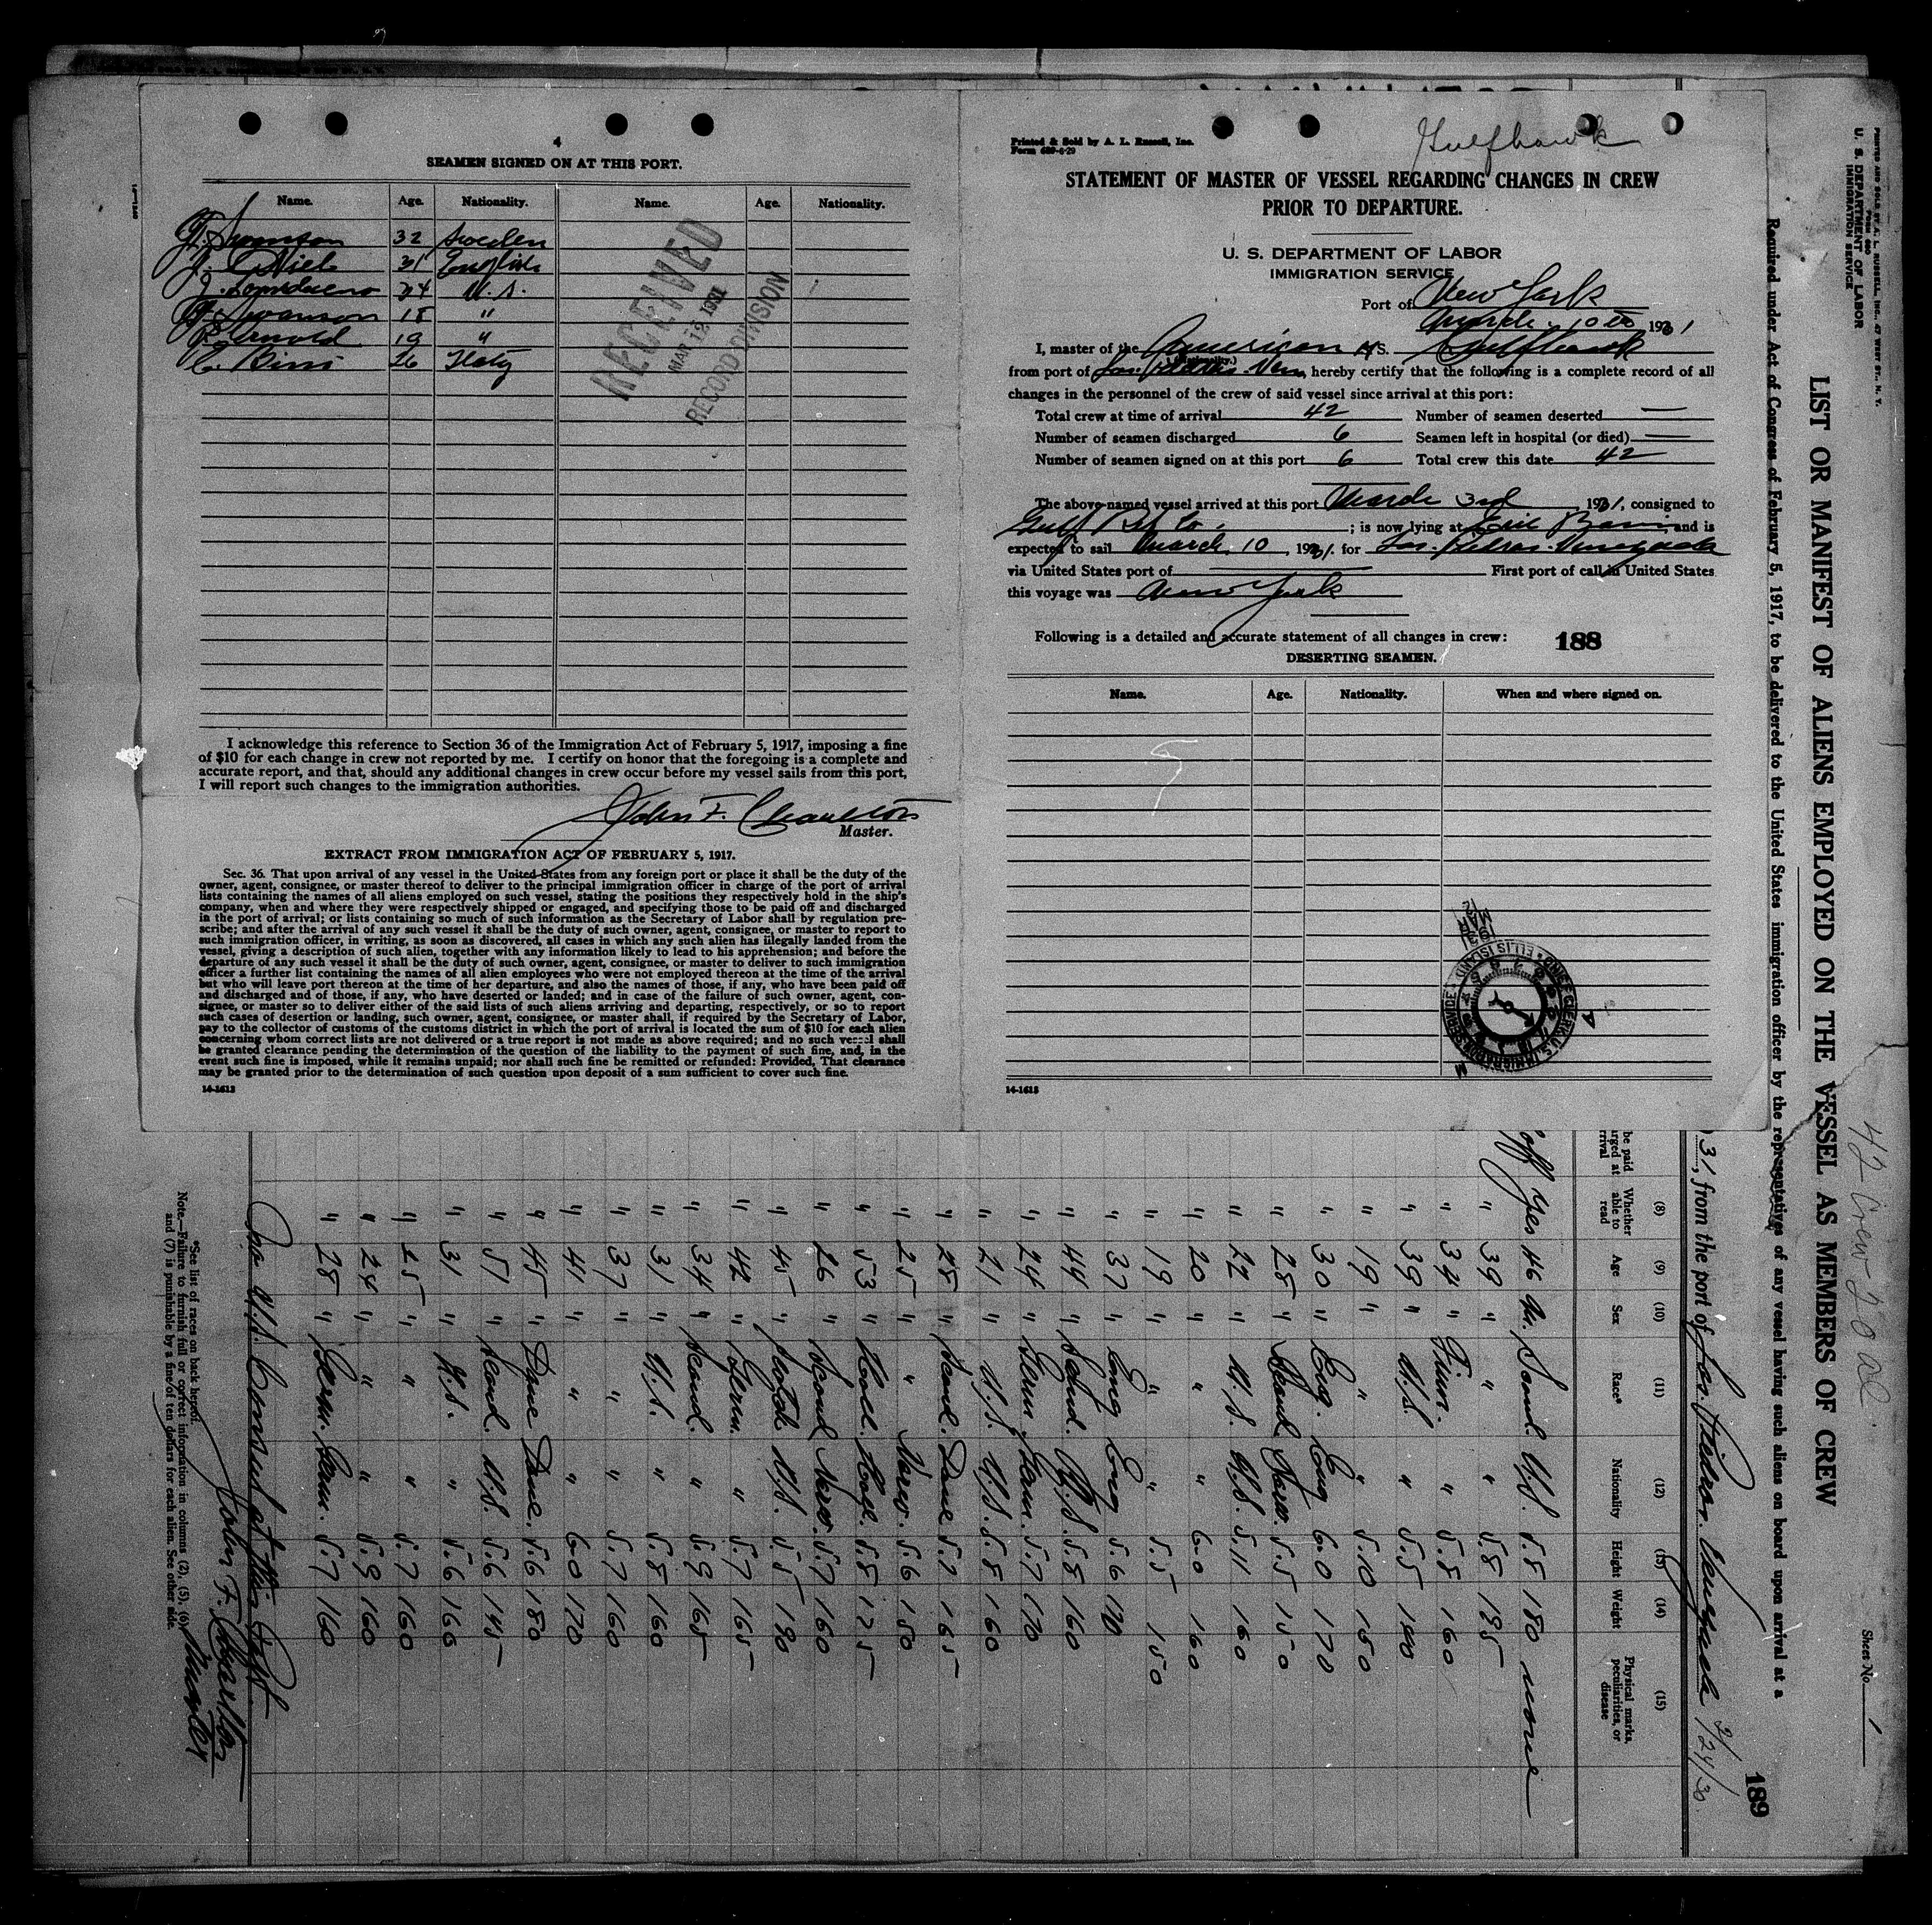 4
SEAMEN SIGNED ON AT THIS PORT.
Name. Age. Nationality. Name. Age. Nationality.
Swanson 32 Sweden
31 English
U.S.
Swanson 18 "
Arnold 19 "
26 Italy
RECEIVED
MAR 12 1931
RECORD DIVISION
I acknowledge this reference to Section 36 of the Immigration Act of February 5, 1917, imposing a fine
of $10 for each change in crew not reported by me. I certify on honor that the foregoing is a complete and
accurate report, and that, should any additional changes in crew occur before my vessel sails from this port,
I will report such changes to the immigration authorities.
John F. Charlton
Master.
EXTRACT FROM IMMIGRATION ACT OF FEBRUARY 5, 1917.
Sec. 36. That upon arrival of any vessel in the United States from any foreign port or place it shall be the duty of the
owner, agent, consignee, or master thereof to deliver to the principal immigration officer in charge of the port of arrival
lists containing the names of all aliens employed on such vessel, stating the positions they respectively hold in the ship's
company, when and where they were respectively shipped or engaged, and specifying those to be paid off and discharged
in the port of arrival; or lists containing so much of such information as the Secretary of Labor shall by regulation pre-
scribe; and after the arrival of any such vessel it shall be the duty of such owner, agent, consignee, or master to report to
such immigration officer, in writing, as soon as discovered, all cases in which any such alien has illegally landed from the
vessel, giving a description of such alien, together with any information likely to lead to his apprehension; and before the
departure of any such vessel it shall be the duty of such owner, agent, consignee, or master to deliver to such immigration
officer a further list containing the names of all alien employees who were not employed thereon at the time of the arrival
but who will leave port thereon at the time of her departure, and also the names of those, if any, who have been paid off
and discharged and of those, if any, who have deserted or landed; and in case of the failure of such owner, agent, con-
signee, or master so to deliver either of the said lists of such aliens arriving and departing, respectively, or so to report
such cases of desertion or landing, such owner, agent, consignee, or master shall, if required by the Secretary of Labor,
pay to the collector of customs of the customs district in which the port of arrival is located the sum of $10 for each alien
concerning whom correct lists are not delivered or a true report is not made as above required; and no such vessel shall
be granted clearance pending the determination of the question of the liability to the payment of such fine, and, in the
event such fine is imposed, while it remains unpaid; nor shall such fine be remitted or refunded: Provided, That clearance
may be granted prior to the determination of such question upon deposit of a sum sufficient to cover such fine.
14-1613
Printed & Sold by A. L. Russell, Inc.
Form 689-6-29
Gulfhawk
STATEMENT OF MASTER OF VESSEL REGARDING CHANGES IN CREW
PRIOR TO DEPARTURE.
U. S. DEPARTMENT OF LABOR
IMMIGRATION SERVICE
Port of New York
March 10th 1931
I, master of the American S. Gulfhawk
(Nationality.)
from port of Las Piedras Ven, hereby certify that the following is a complete record of all
changes in the personnel of the crew of said vessel since arrival at this port:
Total crew at time of arrival 42 Number of seamen deserted —
Number of seamen discharged 6 Seamen left in hospital (or died) —
Number of seamen signed on at this port 6 Total crew this date 42
The above-named vessel arrived at this port March 3rd, 1931, consigned to
Gulf Ref Co.; is now lying at Erie Basin and is
expected to sail March 10, 1931 for Las Piedras Venezuela
via United States port of First port of call in United States
this voyage was New York
Following is a detailed and accurate statement of all changes in crew: 188
DESERTING SEAMEN.
Name. Age. Nationality. When and where signed on.
U.S. IMMIGRATION SERVICE
ELLIS ISLAND
1931 MAR 12
14-1613
PRINTED AND SOLD BY A. L. RUSSELL, INC., 27 WEST ST., N. Y.
FORM 680
U. S. DEPARTMENT OF LABOR
IMMIGRATION SERVICE
42 Crew 20 al.
Sheet No. 1
LIST OR MANIFEST OF ALIENS EMPLOYED ON THE VESSEL AS MEMBERS OF CREW
Required under Act of Congress of February 5, 1917, to be delivered to the United States immigration officer by the representatives of any vessel having such aliens on board upon arrival at a
189
31, from the port of Las Piedras. Venezuela 2/24/30
(8) (9) (10) (11) (12) (13) (14) (15)
Whether able to read Age Sex Race* Nationality Height Weight Physical marks, peculiarities, or disease
off Yes 46 M. Scand. U.S. 5.8 180 none
" 39 " " " 5.8 185
" 34 " Finn. " 5.8 160
" 39 " U.S. " 5.5 140
" 19 " " " 5.10 150
" 30 " Eng. Eng 6.0 170
" 28 " Scand. 5.5 150
" 22 " U.S. U.S. 5.11 160
" 20 " " 6.0 160
" 19 " " 5.5 150
" 37 " Eng Eng 5.6
" 44 " Scand. U.S 5.8 160
" 24 " Germ Germ. 5.7 170
" 21 " U.S. U.S. 5.8 160
" 28 " Scand. Dane 5.7 165
" 25 " " Norw. 5.6 150
" 53 " Holl. Holl. 5.8 175
" 26 " Scand Norw. 5.7 160
" 45 " Scotch U.S. 5.5 180
" 42 " Germ. " 5.7 165
" 34 " Scand. " 5.9 165
" 31 " U.S. " 5.8 160
" 37 " " " 5.7 160
" 41 " " " 6.0 170
" 45 " Dane Dane. 5.6 180
" 51 " Scand. U.S. 5.6 145
" 31 " U.S. " 5.6 160
" 25 " " " 5.7 160
" 24 " " " 5.9 160
" 28 " Germ. Germ. 5.7 160
No U.S. Consul at this Port.
John F. Charlton
Master
*See list of races on back hereof.
Note.—Failure to furnish full or correct information in columns (2), (5), (6)
and (7) is punishable by a fine of ten dollars for each alien. See other side.